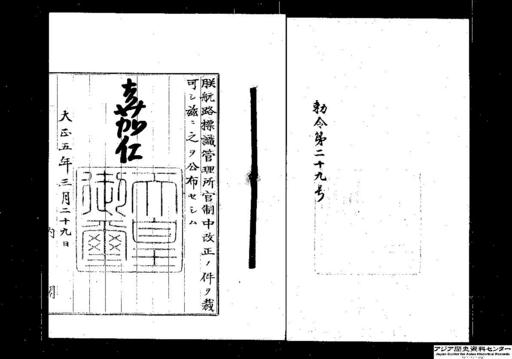 勅令第二十九号
朕航路標識管理所官制中改正ノ件ヲ裁
可シ茲ニ之ヲ公布セシム
嘉仁
天皇
御璽
大正五年三月二十九日
内閣
アジア歴史資料センター
Japan Center for Asian Historical Records